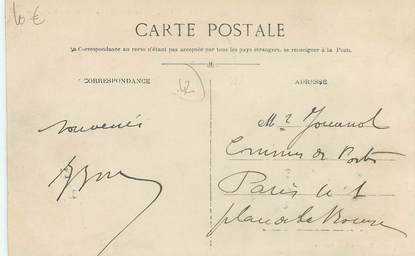 10 €
CARTE POSTALE
Correspondance au recto n'étant pas acceptée par tous les pays étrangers, se renseigner à la Poste.
CORRESPONDANCE
ADRESSE
Souvenirs
Mr
Commis de Postes
Paris n° 1
place de la Bourse